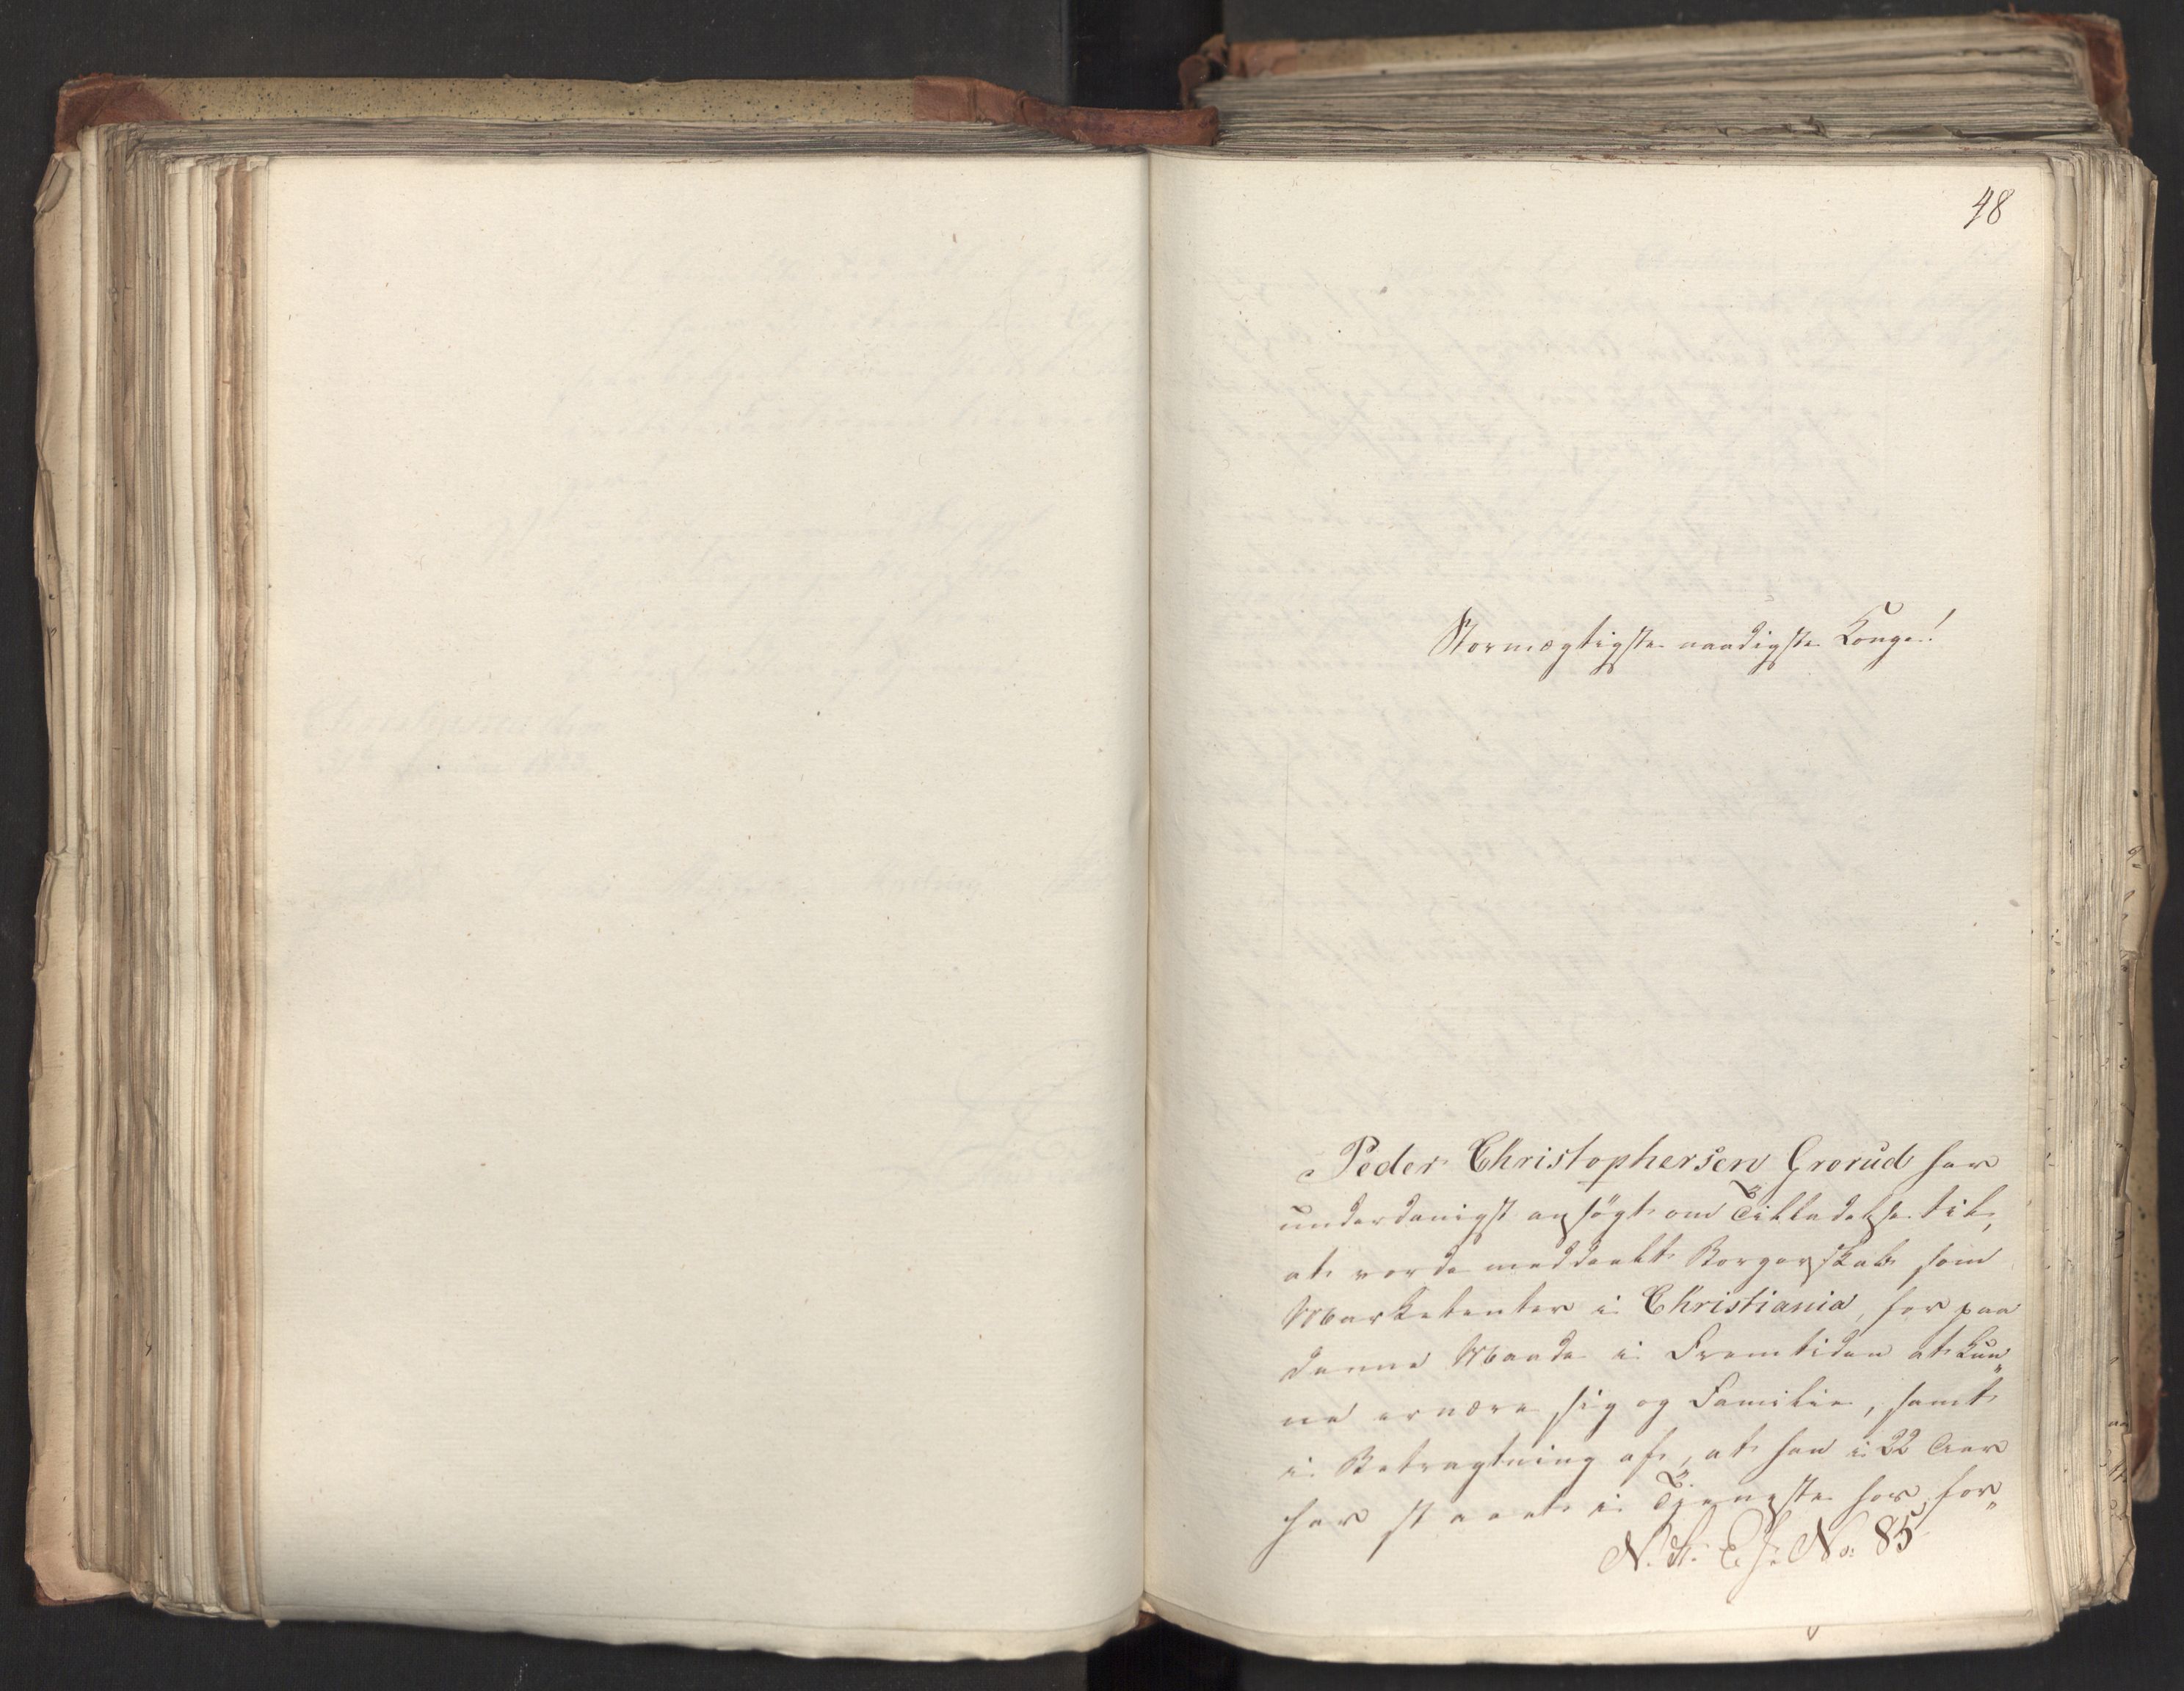 48
Stormægtigste naadigste Konge!
Peder Christophersen Grorud har
underdanigst ansøgt om Tilladelse til,
at vorde meddeelt Borgerskab som
Marketenter i Christiania, for paa
denne Maade i Fremtiden at kun„
ne ernære sig og Familie, samt
i Betragtning af, at han i 22 Aar
har staaet i Tjeneste hos for„
N. St. E. J. No: 85